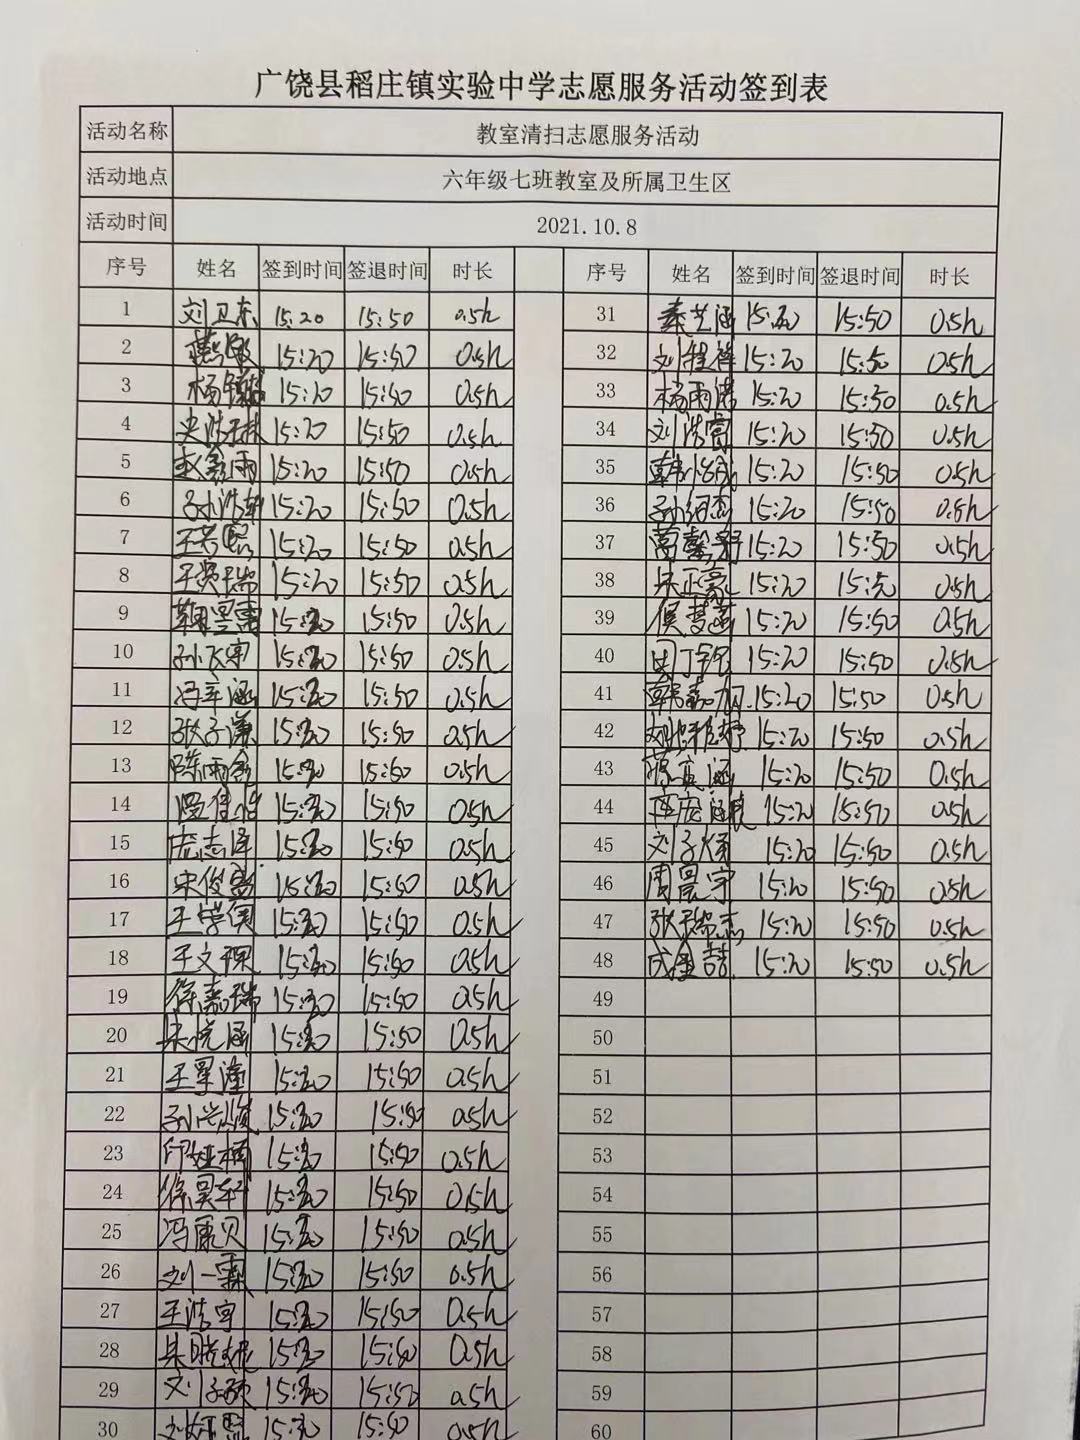 广饶县稻庄镇实验中学志愿服务活动签到表
活动名称 教室清扫志愿服务活动
活动地点 六年级七班教室及所属卫生区
活动时间 2021.10.8
序号 姓名 签到时间 签退时间 时长 序号 姓名 签到时间 签退时间 时长
1 刘卫东 15:20 15:50 0.5h 31 秦艺涵 15:20 15:50 0.5h
2 15:20 15:50 0.5h 32 刘程祥 15:20 15:50 0.5h
3 15:20 15:50 0.5h 33 杨雨诺 15:20 15:50 0.5h
4 15:20 15:50 0.5h 34 刘浩富 15:20 15:50 0.5h
5 赵鑫雨 15:20 15:50 0.5h 35 15:20 15:50 0.5h
6 孙浩轩 15:20 15:50 0.5h 36 孙绍杰 15:20 15:50 0.5h
7 15:20 15:50 0.5h 37 15:20 15:50 0.5h
8 王奕瑞 15:20 15:50 0.5h 38 宋正豪 15:20 15:50 0.5h
9 15:20 15:50 0.5h 39 15:20 15:50 0.5h
10 孙飞宇 15:20 15:50 0.5h 40 15:20 15:50 0.5h
11 冯梓涵 15:20 15:50 0.5h 41 15:20 15:50 0.5h
12 张子谦 15:20 15:50 0.5h 42 15:20 15:50 0.5h
13 陈雨含 15:20 15:50 0.5h 43 15:20 15:50 0.5h
14 15:20 15:50 0.5h 44 15:20 15:50 0.5h
15 庞志泽 15:20 15:50 0.5h 45 15:20 15:50 0.5h
16 宋俊盛 15:20 15:50 0.5h 46 周晨宇 15:20 15:50 0.5h
17 15:20 15:50 0.5h 47 张瑞志 15:20 15:50 0.5h
18 王文琪 15:20 15:50 0.5h 48 成金喆 15:20 15:50 0.5h
19 徐嘉瑞 15:20 15:50 0.5h 49
20 宋悦涵 15:20 15:50 0.5h 50
21 15:20 15:50 0.5h 51
22 15:20 15:50 0.5h 52
23 15:20 15:50 0.5h 53
24 徐昊轩 15:20 15:50 0.5h 54
25 15:20 15:50 0.5h 55
26 刘一霖 15:20 15:50 0.5h 56
27 王浩宇 15:20 15:50 0.5h 57
28 15:20 15:50 0.5h 58
29 刘子硕 15:20 15:50 0.5h 59
30 15:20 15:50 0.5h 60